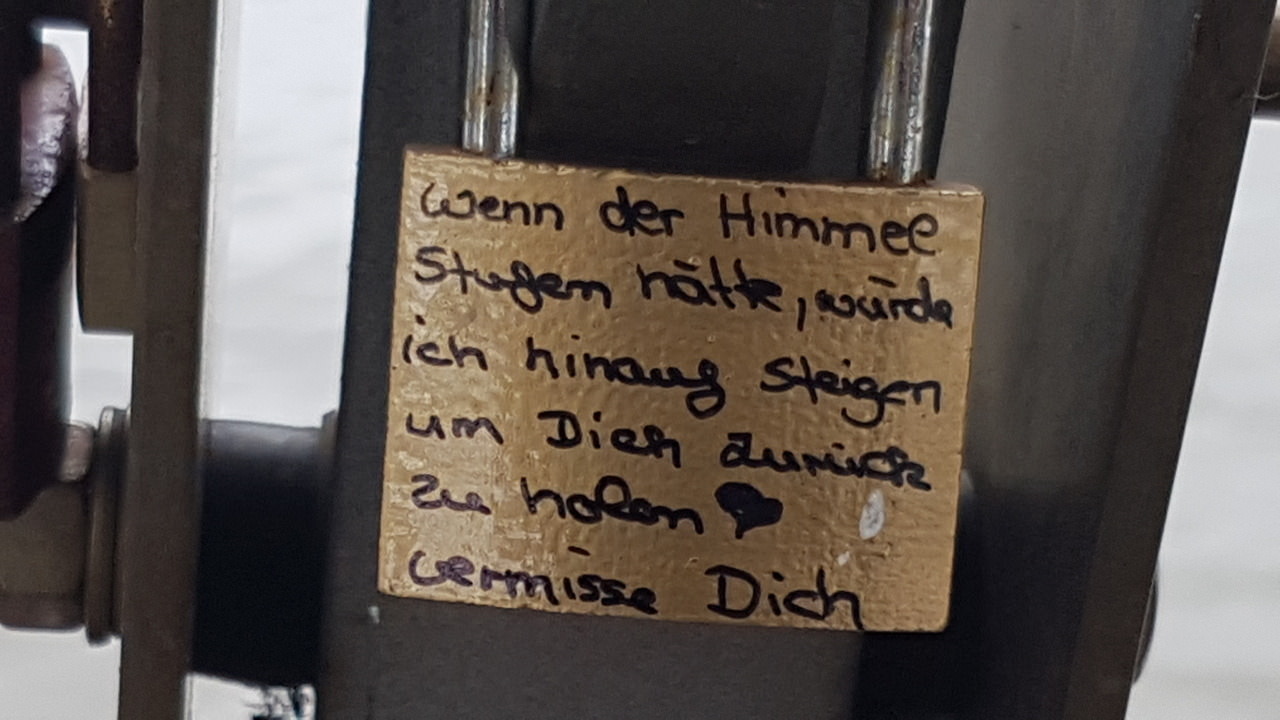 wenn der Himmel
Stufen hätte, würde
ich hinauf steigen
um Dich zurück
zu holen
vermisse Dich